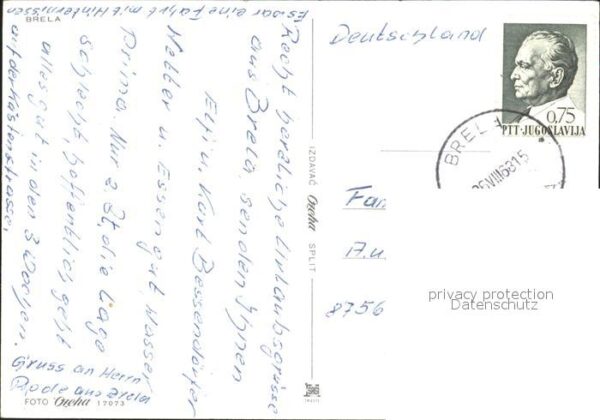 BRELA
Es war eine Fahrt mit Hinternissen
Recht herzliche Urlaubsgrüsse
aus Brela senden Ihnen
Elfi u. Karl Bessendörfer
Wetter u. Essen gut, Wasser
Prima. Nur 2 St. die Lage
schlecht, hoffentlich geht
alles gut in den 3 Wochen.
auf der Küstenstrasse,
Gruss an Herrn
Rode aus Brela
FOTO 17073
IZDAVAČ SPLIT
Deutschland
0,75
PTT·JUGOSLAVIJA
BRELA
26VIII6815
Fam
A.u
8756
privacy protection
Datenschutz